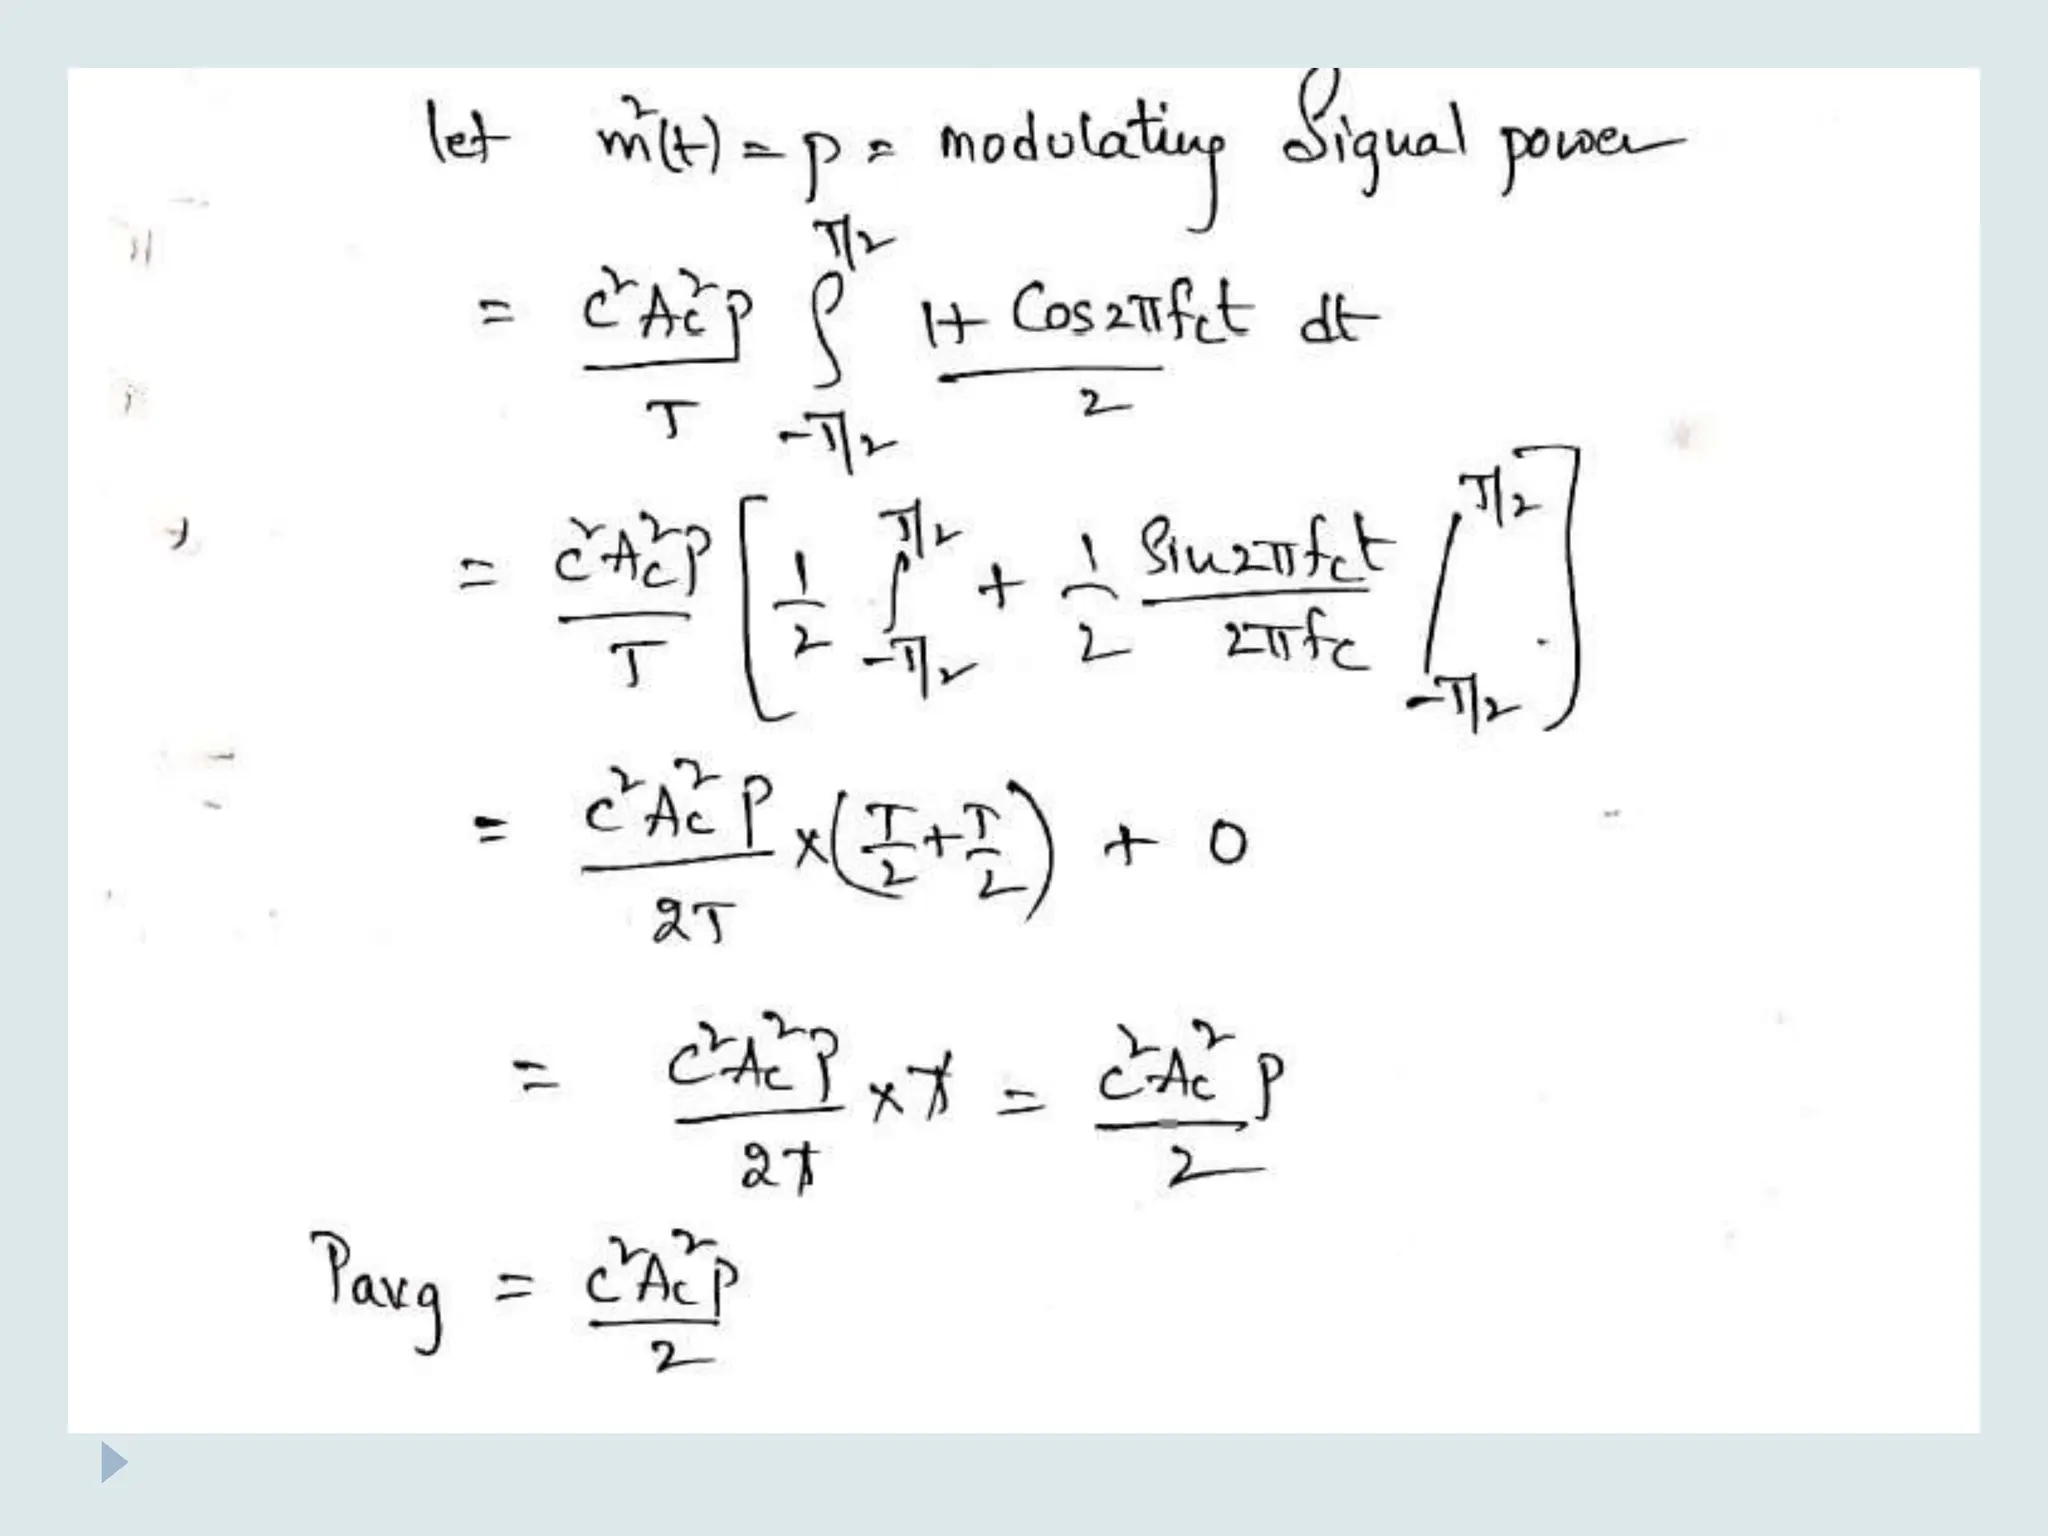 let m²(t) = p = modulating Signal power
= C²Ac²p / T ∫_{-T/2}^{T/2} 1 + Cos2πfct / 2 dt
= C²Ac²p / T [ 1/2 ∫_{-T/2}^{T/2} + 1/2 Sin2πfct / 2πfc /_{-T/2}^{T/2} ]
= C²Ac²p / 2T × (T/2 + T/2) + 0
= C²Ac²p / 2T × T = C²Ac²p / 2
Pavg = C²Ac²p / 2